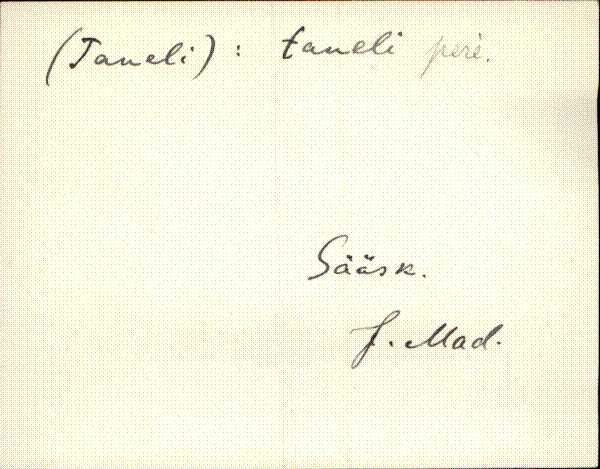 (Taneli) : taneli pere.
Sääsk.
J. Mad.